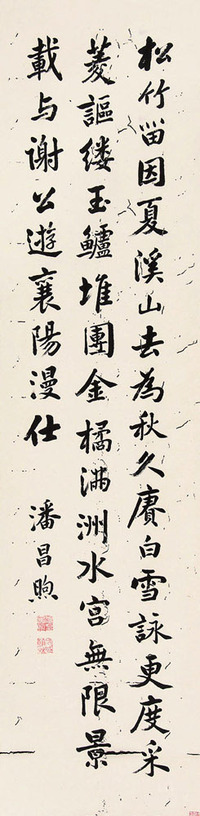 松竹留因夏溪山去為秋久賡白雪詠更度采
菱謳縷玉鱸堆團金橘滿洲水宮無限景
載与谢公遊襄陽漫仕
潘昌煦